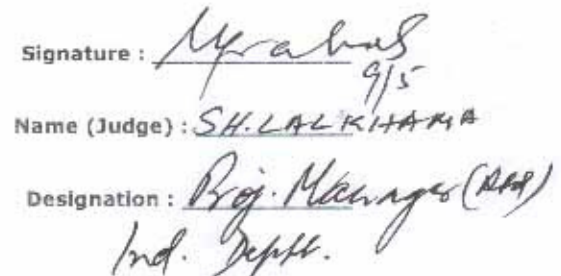 Signature :
9/5
Name (Judge) : SH. LALKHAMA
Designation : Proj. Manager
Ind. Deptt.